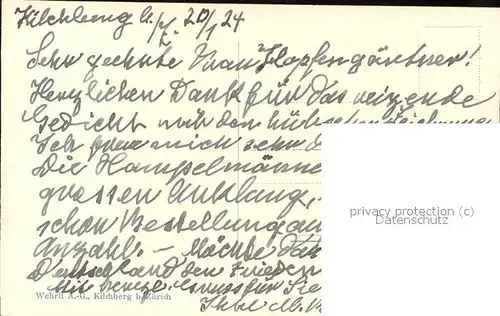 Kilchberg b./Z. 20/1 24
Sehr geehrte Frau Hopfengärtner!
Herzlichen Dank für das reizende
Gedicht mit den hübschen Zeichnung
Ich freue mich sehr
Die Hampelmänne
grossen Anklang,
schon Bestellung auf
Anzahl. – Möchte das
Deutschland den Frieden
Mit herzl. Gruss für Sie
Ihre M.
Wehrli A.-G., Kilchberg b. Zürich
privacy protection (c)
Datenschutz